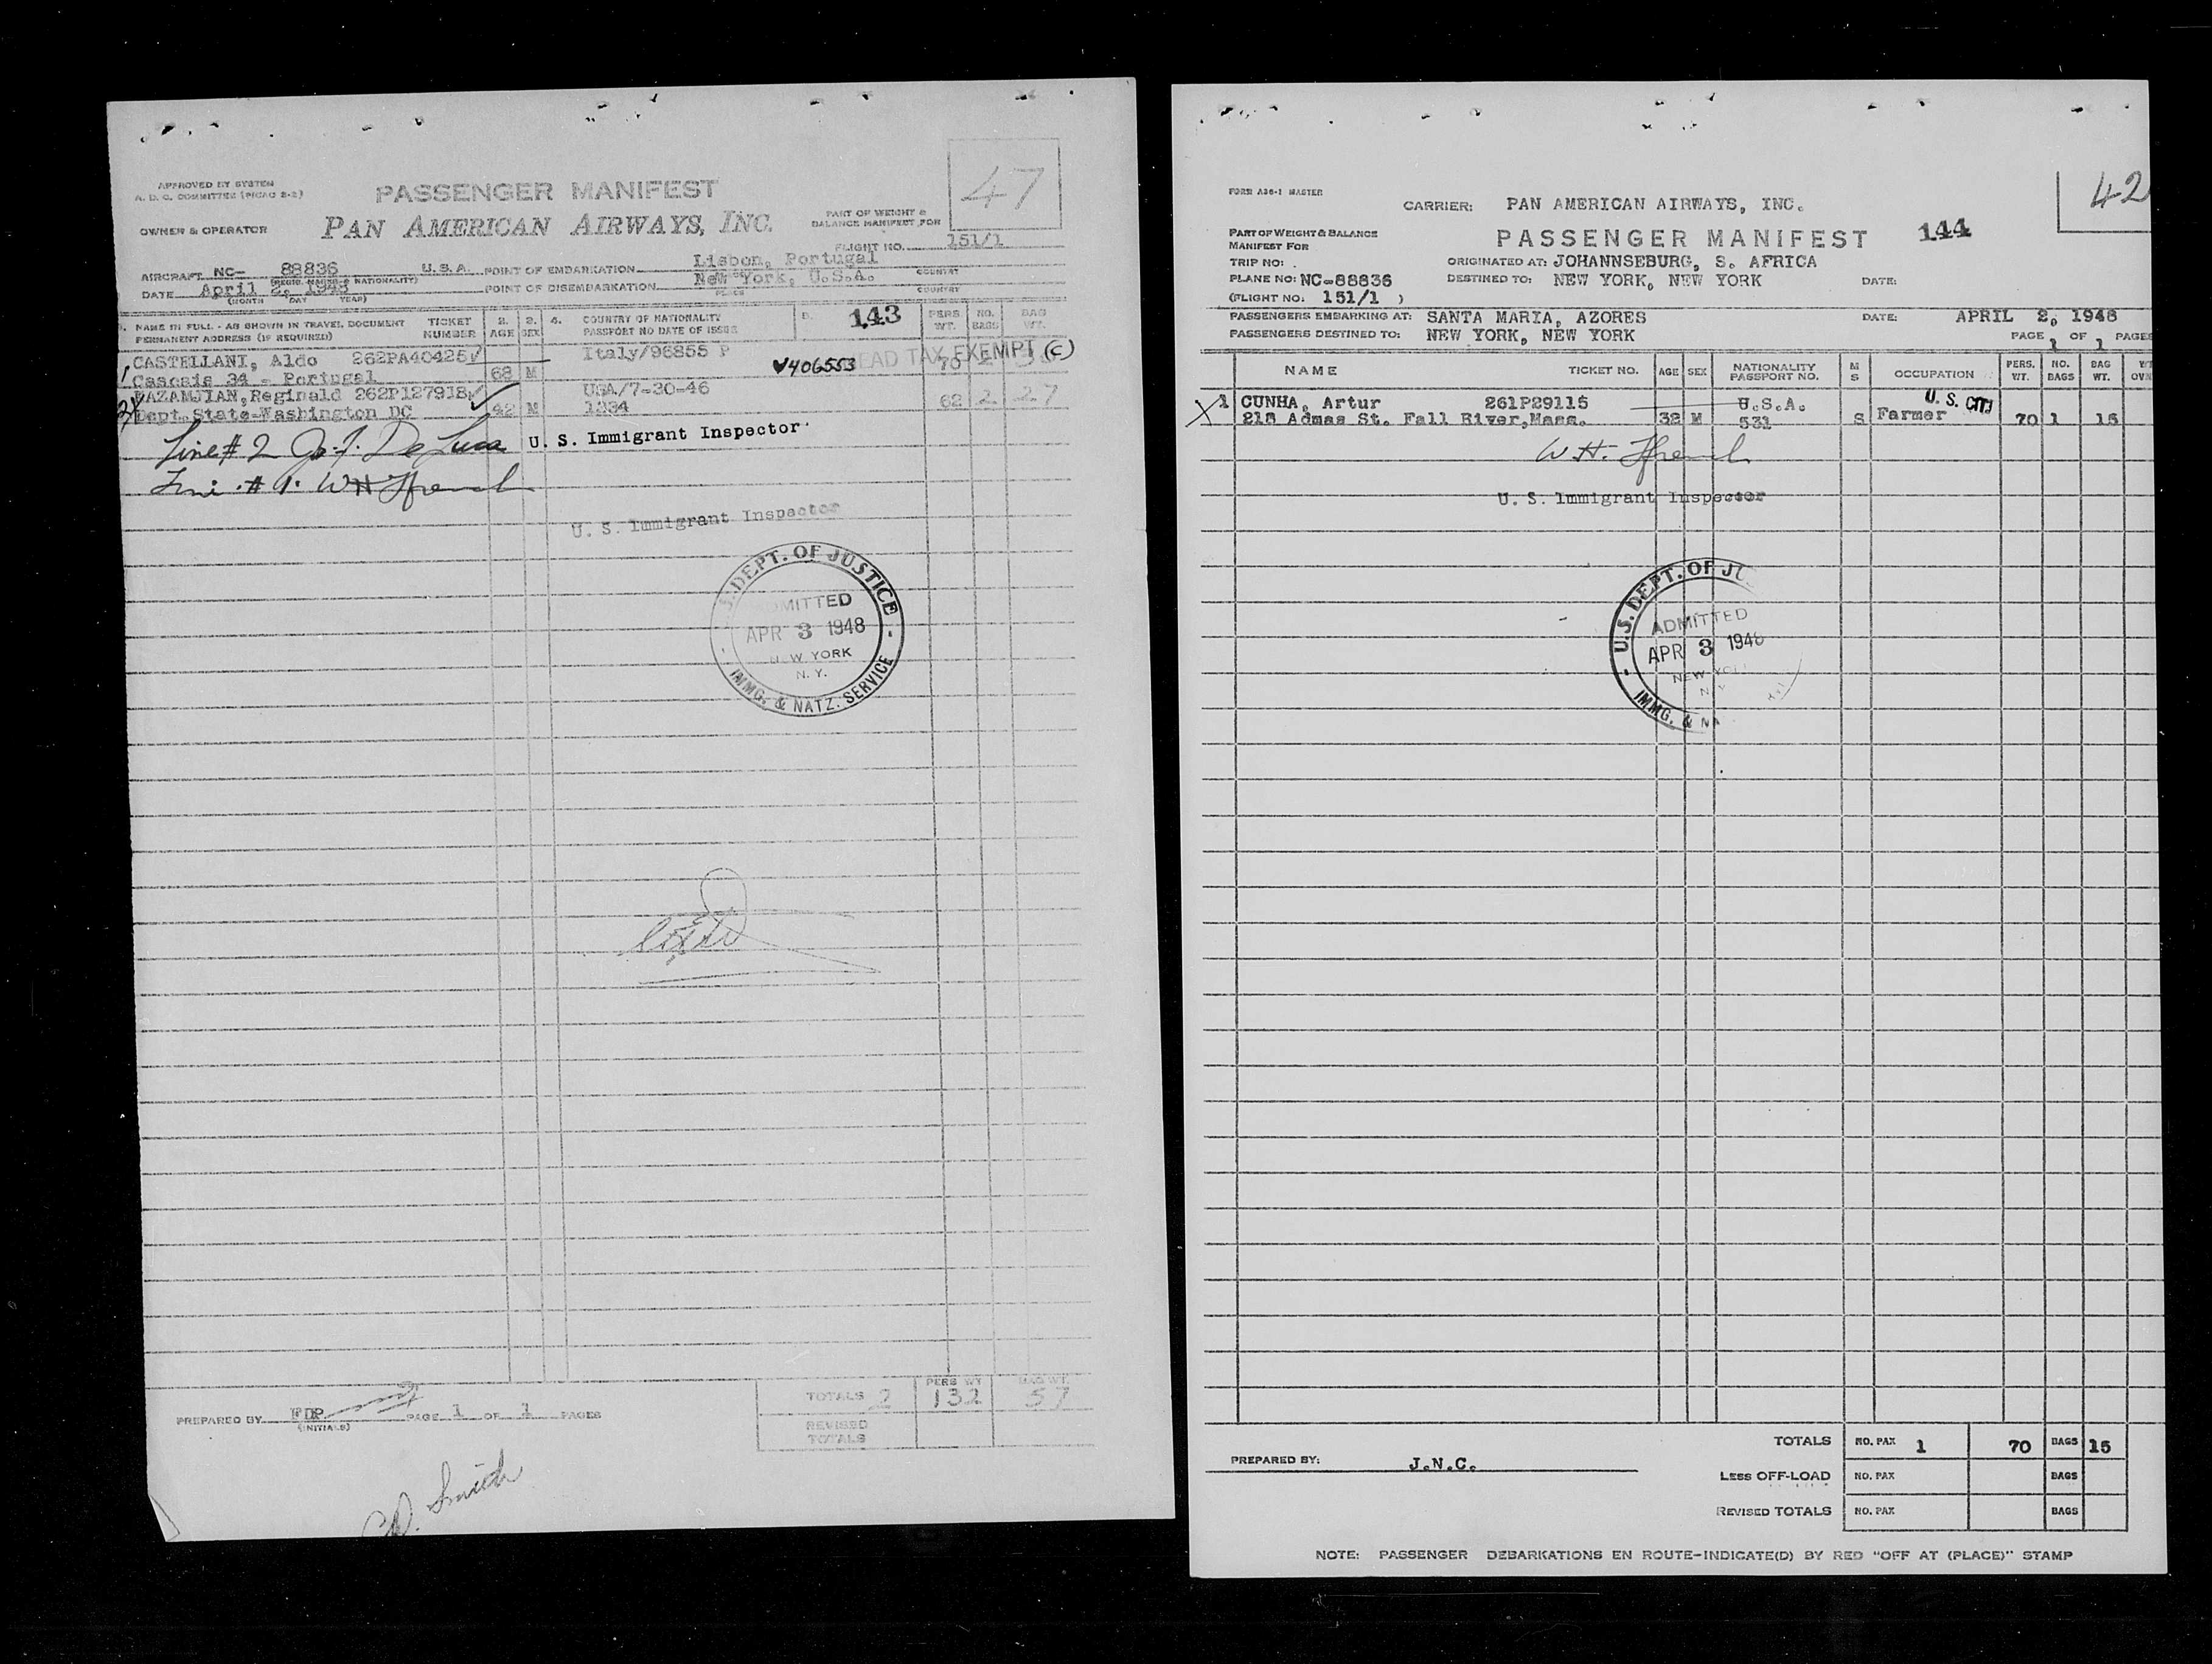 APPROVED BY SYSTEM
A. D. C. COMMITTEE (PICAO 2-2)
PASSENGER MANIFEST
47
OWNER & OPERATOR
PAN AMERICAN AIRWAYS, INC.
PART OF WEIGHT &
BALANCE MANIFEST FOR
FLIGHT NO. 151/1
AIRCRAFT NC- 88836 U.S.A. POINT OF EMBARKATION Lisbon, Portugal COUNTRY
(REGIS. MARKS & NATIONALITY)
DATE April 2, 1948 POINT OF DISEMBARKATION New York, U.S.A. COUNTRY
(MONTH DAY YEAR) PLACE
NAME IN FULL - AS SHOWN IN TRAVEL DOCUMENT TICKET 2. 3. 4. COUNTRY OF NATIONALITY 5. 143 PERS. NO. BAG
PERMANENT ADDRESS (IF REQUIRED) NUMBER AGE SEX PASSPORT NO DATE OF ISSUE WT. BAGS WT.
CASTELLANI, Aldo 262PA40425 Italy/96855 P HEAD TAX EXEMPT (C)
1 Cascais 34 - Portugal 68 M 406553 70 2
BAZAMJIAN, Reginald 262P127918 USA/7-30-46
2 X Dept. State-Washington DC 42 M 1334 62 2 27
Line # 2 Jo. F. De Luca U. S. Immigrant Inspector
Line # 1. WH Ffrench
U. S. Immigrant Inspector
U.S. DEPT. OF JUSTICE
ADMITTED
APR 3 1948
NEW YORK
N. Y.
IMMG. & NATZ. SERVICE
TOTALS 2 PERS WT 132 BAG WT. 57
PREPARED BY FDP PAGE 1 OF 1 PAGES
(INITIALS)
REVISED
TOTALS
Smith
FORM A36-1 MASTER
42
CARRIER: PAN AMERICAN AIRWAYS, INC.
PART OF WEIGHT & BALANCE
MANIFEST FOR
PASSENGER MANIFEST 144
TRIP NO: ORIGINATED AT: JOHANNSEBURG, S. AFRICA
PLANE NO: NC-88836 DESTINED TO: NEW YORK, NEW YORK DATE:
(FLIGHT NO: 151/1 )
PASSENGERS EMBARKING AT: SANTA MARIA, AZORES DATE: APRIL 2, 1948
PASSENGERS DESTINED TO: NEW YORK, NEW YORK PAGE 1 OF 1 PAGES
NAME TICKET NO. AGE SEX NATIONALITY PASSPORT NO. M S OCCUPATION PERS. WT. NO. BAGS BAG WT.
X 1 CUNHA, Artur 261P29115 U.S.A. U. S. CITZ
218 Admas St. Fall River,Mass. 32 M 531 S Farmer 70 1 15
W.H. Ffrench
U. S. Immigrant Inspector
U.S. DEPT. OF JU
ADMITTED
APR 3 1948
NEW YO
N.Y
IMMG. & NA
TOTALS NO. PAX 1 70 BAGS 15
PREPARED BY: J.N.C.
LESS OFF-LOAD NO. PAX BAGS
REVISED TOTALS NO. PAX BAGS
NOTE: PASSENGER DEBARKATIONS EN ROUTE-INDICATE(D) BY RED "OFF AT (PLACE)" STAMP